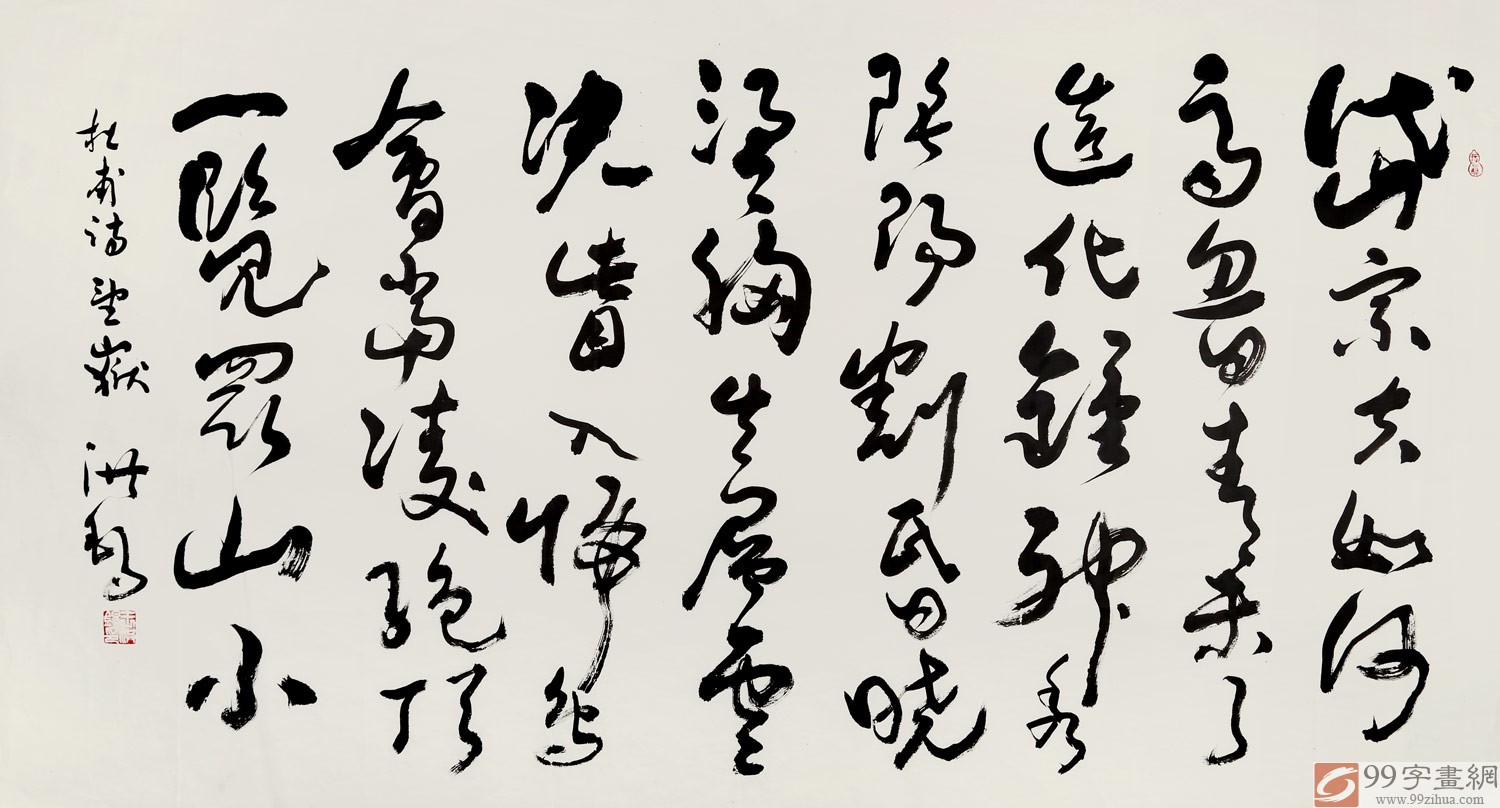 岱宗夫如何
齊魯青未了
造化鍾神秀
陰陽割昏曉
盪胸生層雲
決眥入歸鳥
會當凌絕頂
一覽眾山小
杜甫詩望嶽 洪
99字畫網
www.99zihua.com